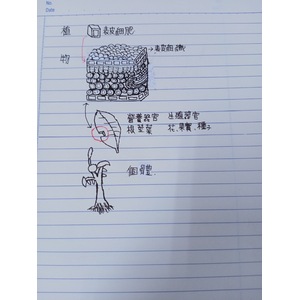 No.
Date
植 表皮細胞
物 表皮組織
營養器官 生殖器官
根莖葉 花、果實、種子
個體